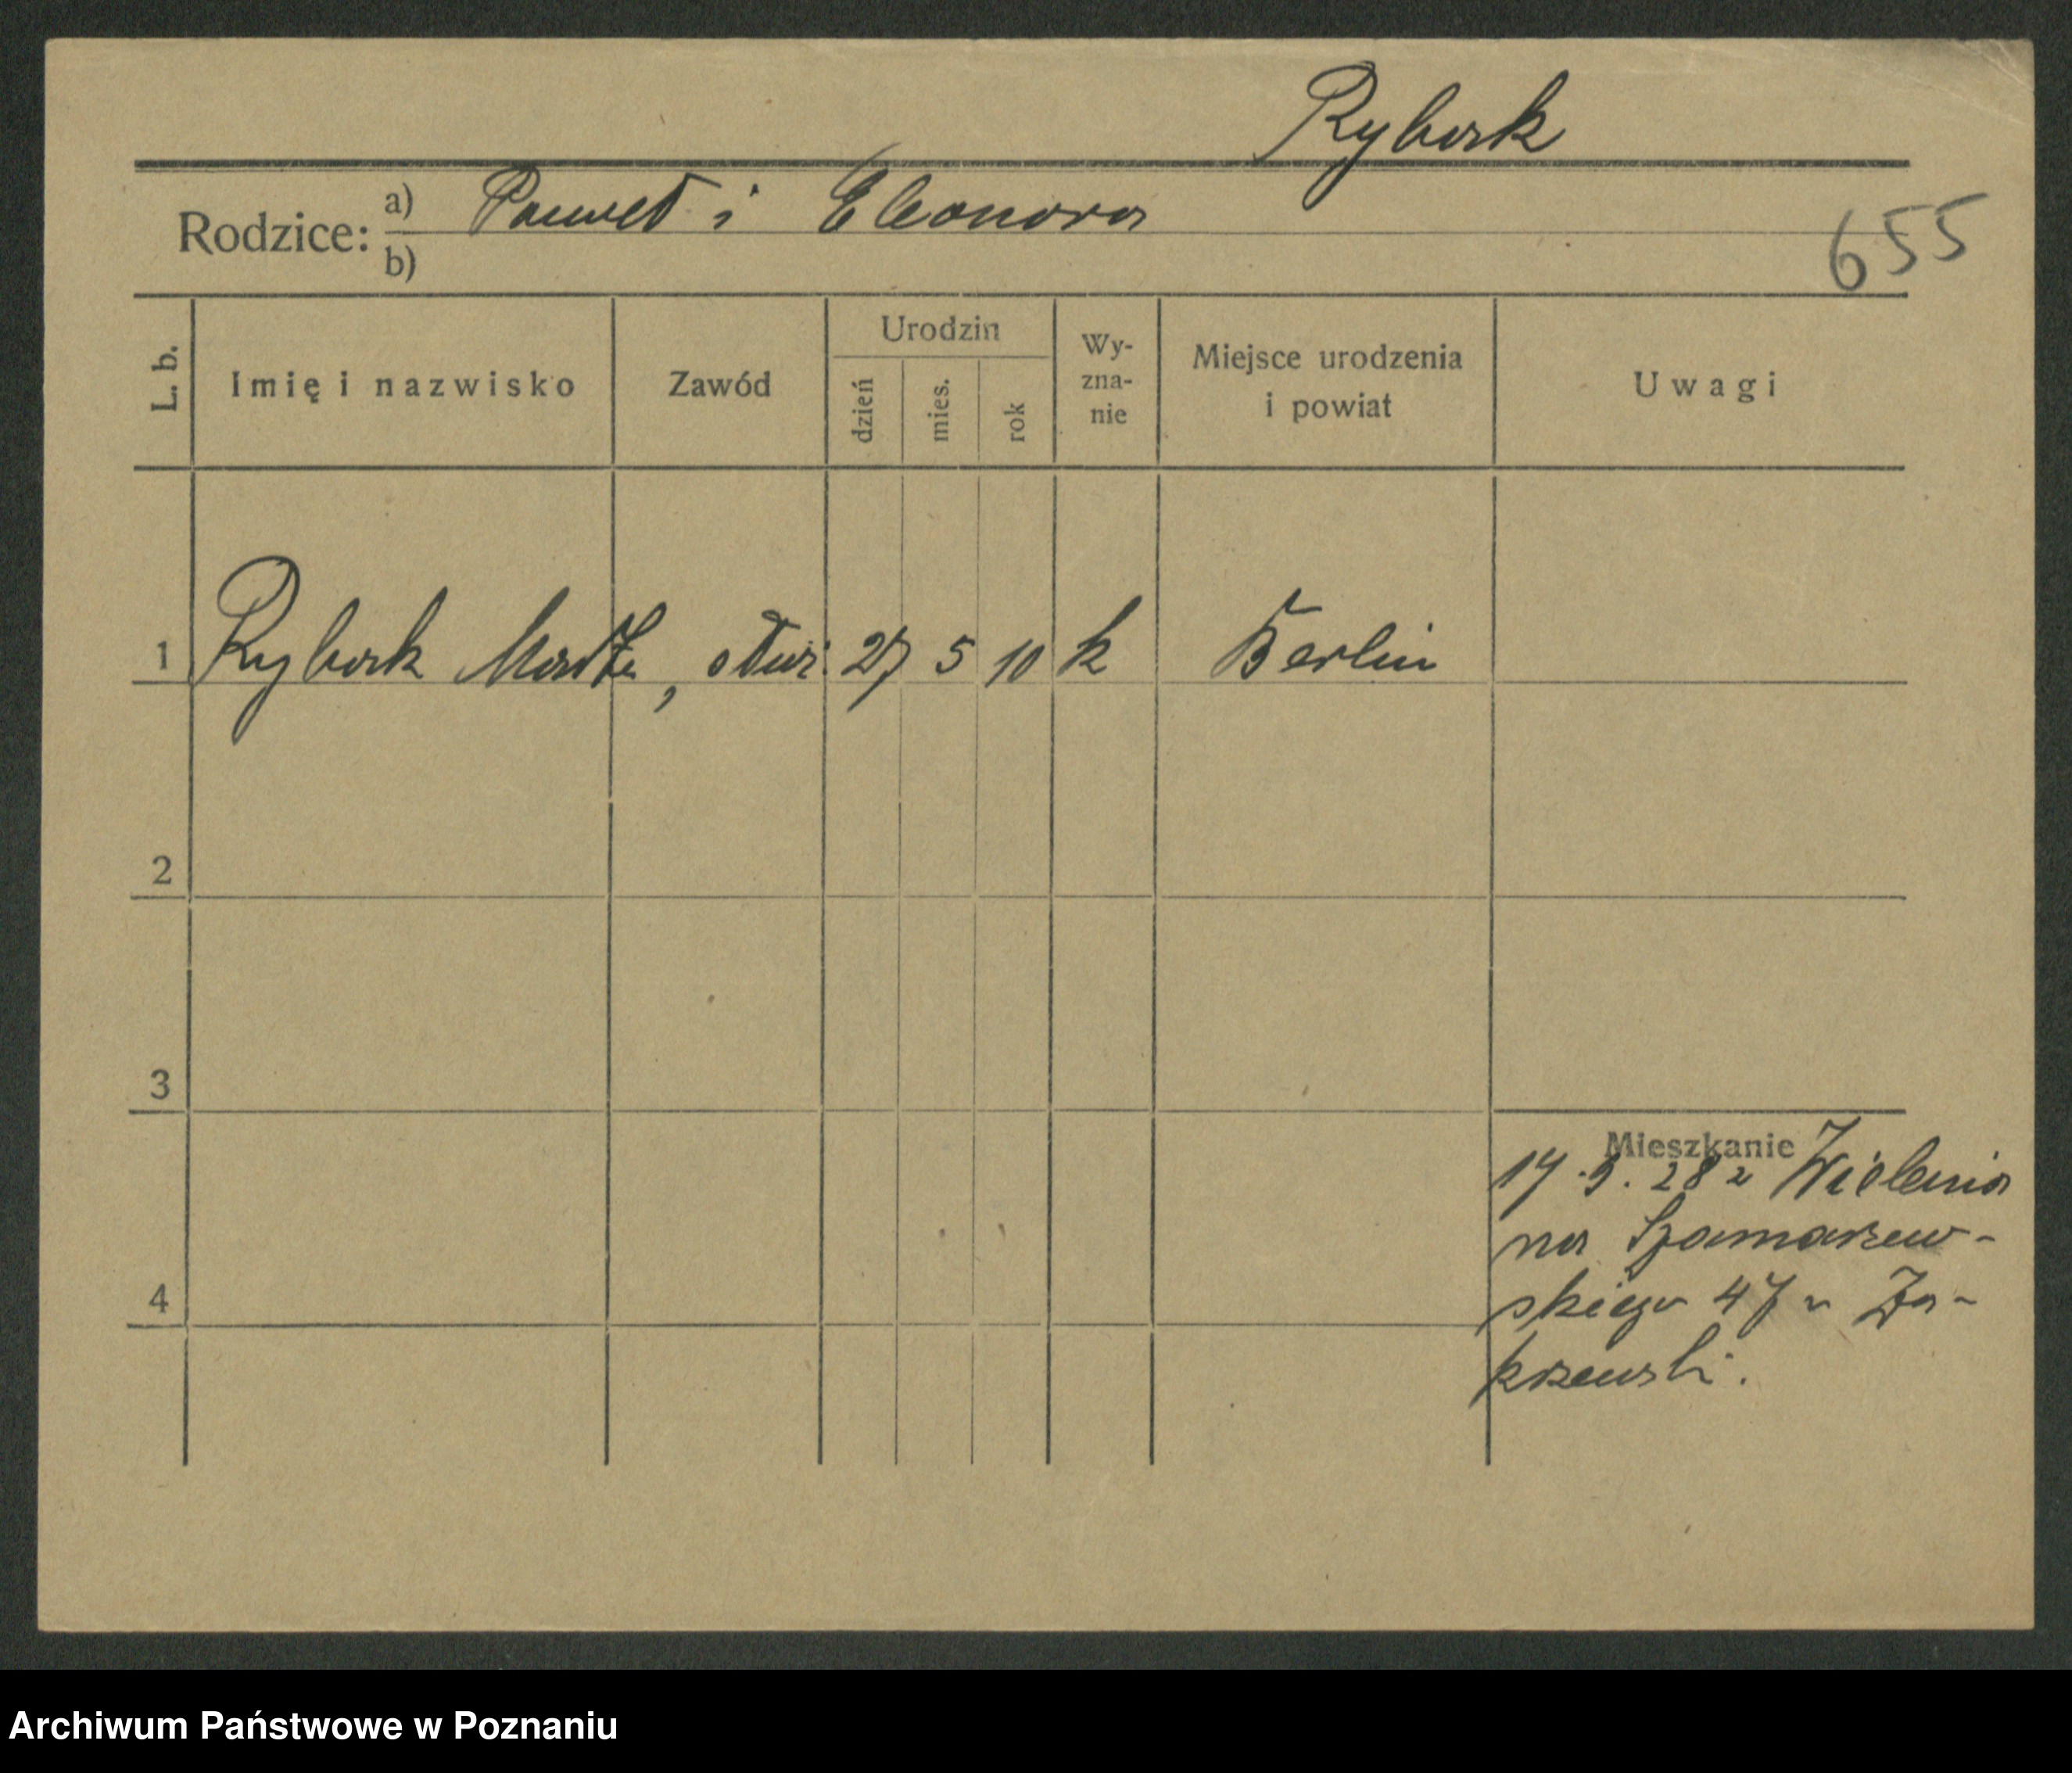 Rybark
Rodzice: a) Paweł i Eleonora
b)
655
L. b.
Imię i nazwisko
Zawód
Urodzin
dzień
mies.
rok
Wy-
zna-
nie
Miejsce urodzenia
i powiat
Uwagi
1 Rybark , 27 5 10 k Berlin
2
3
4
Mieszkanie
17.9.28 z Wielenia
na Szamarzew-
skiego 47 u Za-
krzewski.
Archiwum Państwowe w Poznaniu